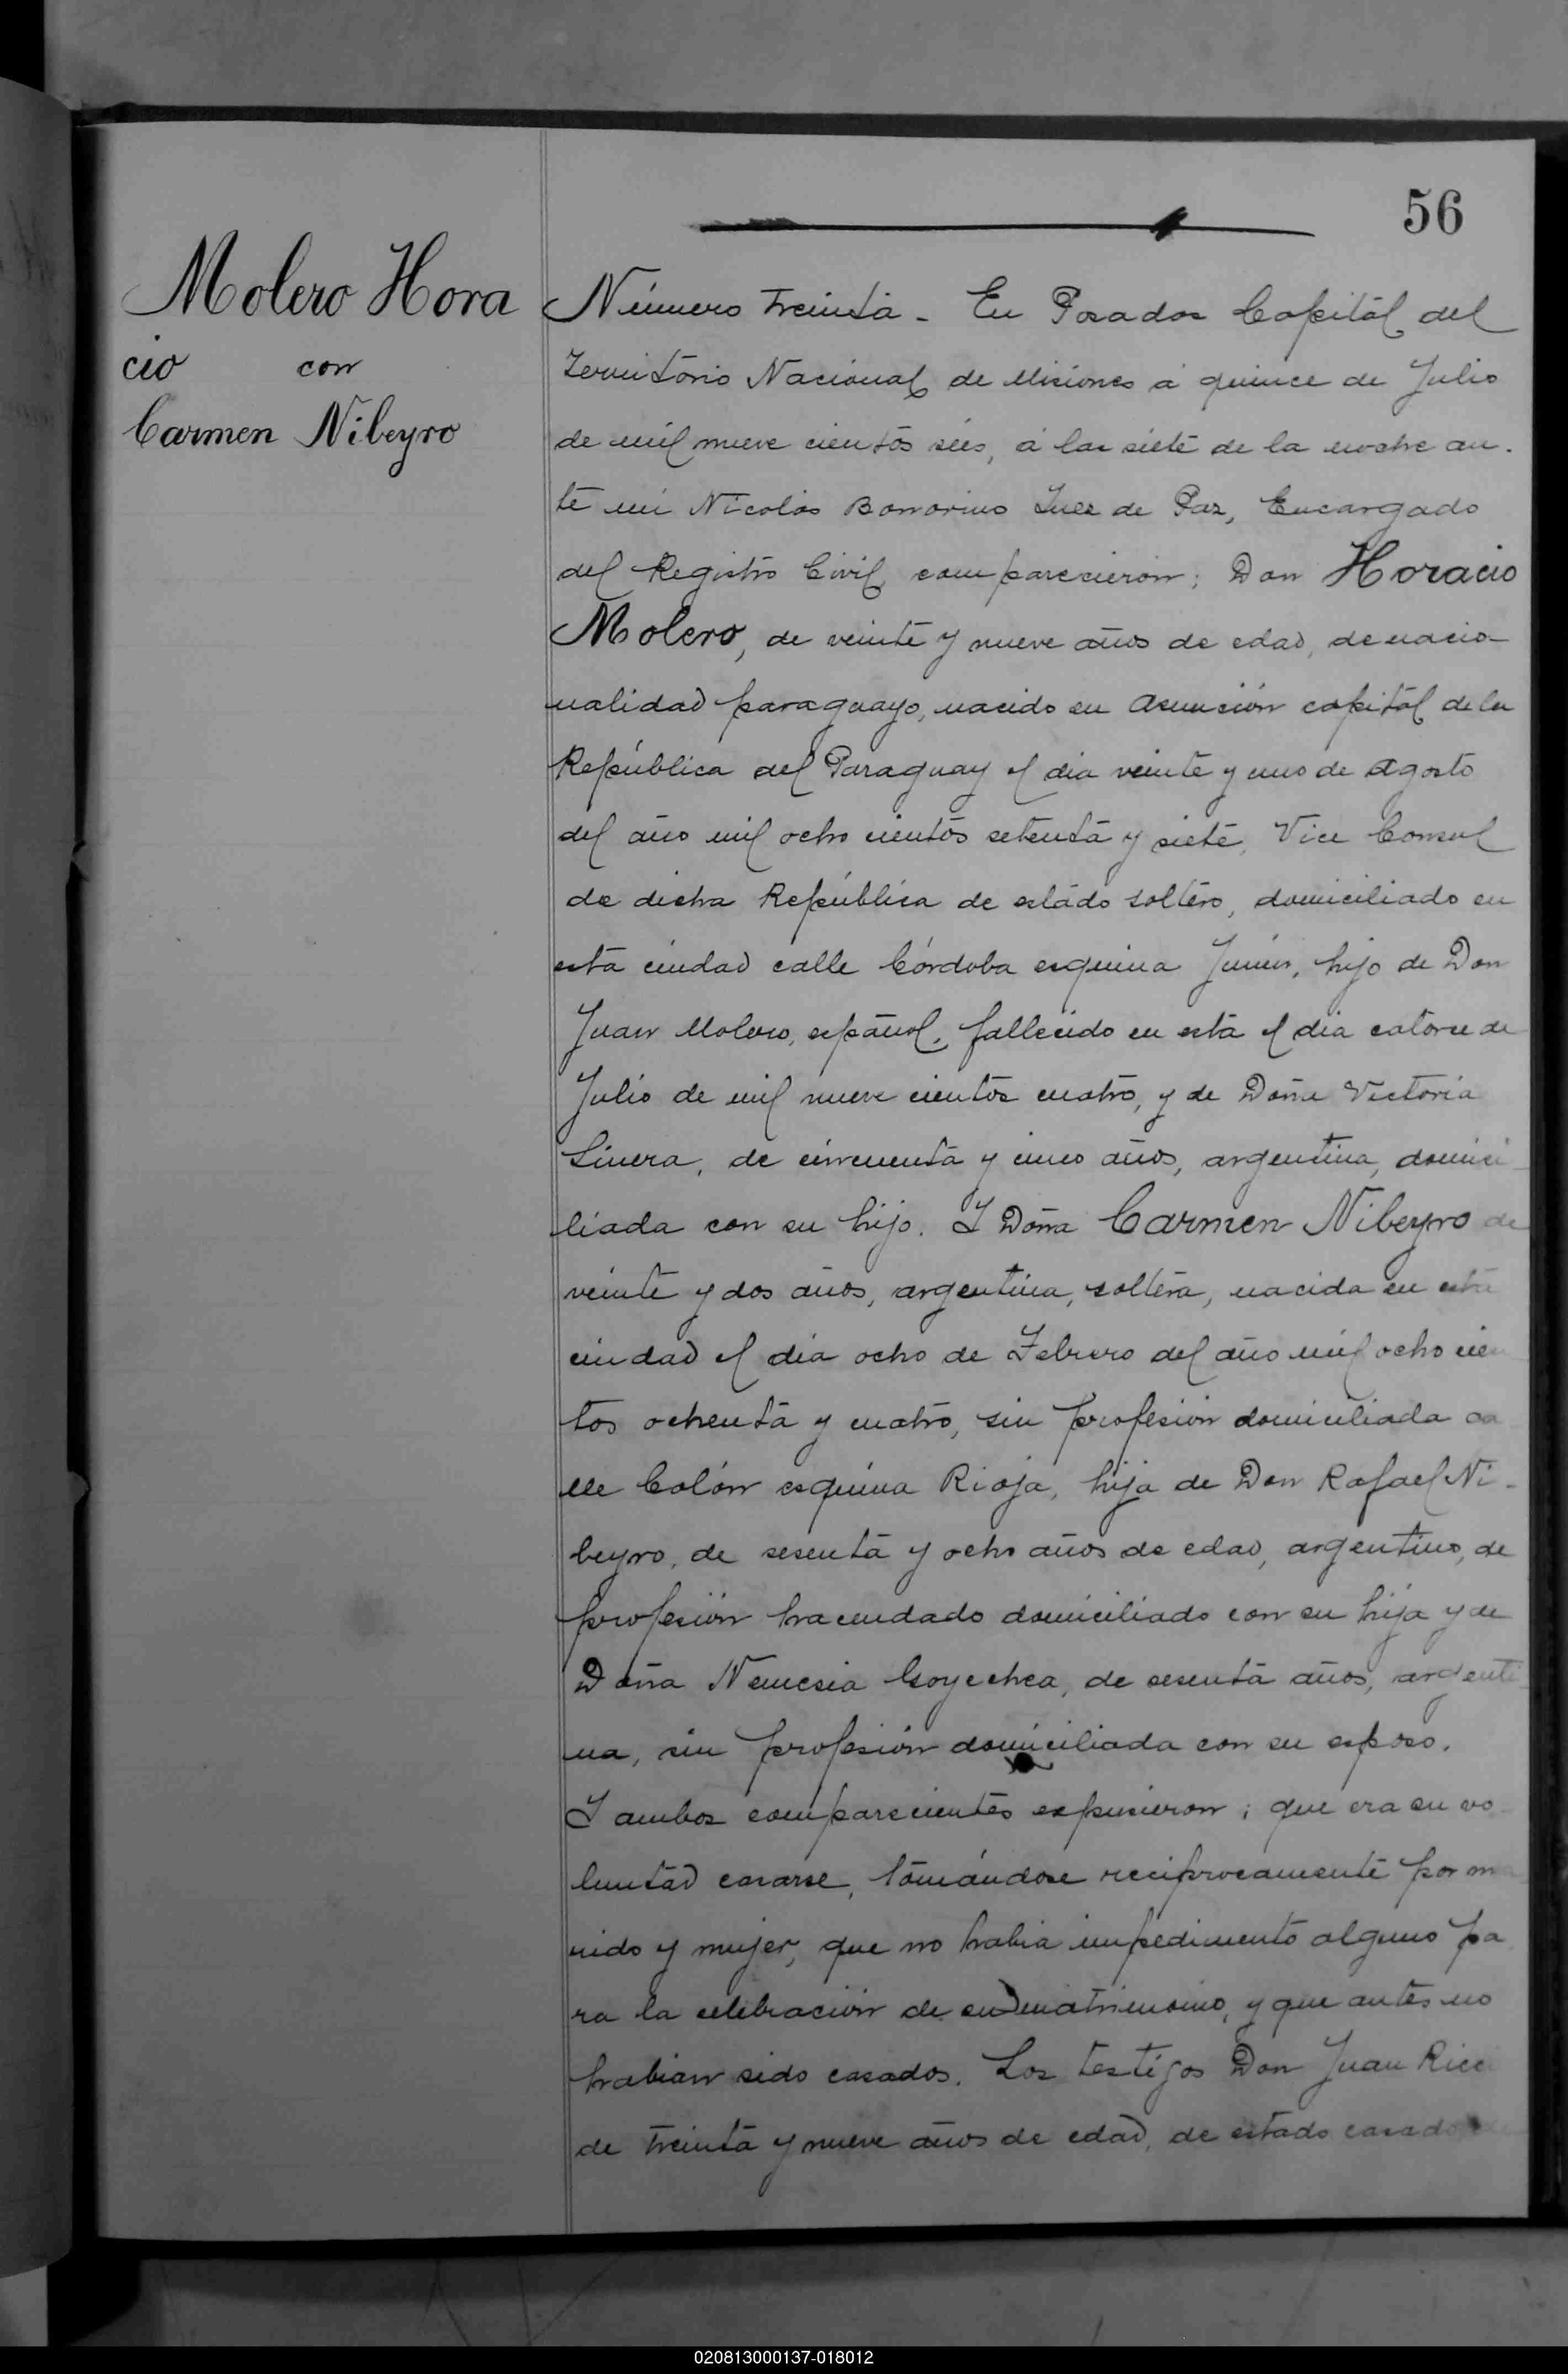 56
Molero Hora
cio con
Carmen Nibeyro
Número treinta - En Posadas Capital del
Territorio Nacional de Misiones á quince de Julio
de mil nueve cientos séis, á las siete de la noche an-
te mi Nicolás Bonorino Juez de Paz, Encargado
del Registro Civil, comparecieron; Don Horacio
Molero, de veinte y nueve años de edad, de nacio-
nalidad paraguayo, nacido en Asunción capital de la
República del Paraguay el dia veinte y uno de Agosto
del año mil ocho cientos setenta y siete, Vice Consul
de dicha República de estado soltero, domiciliado en
esta ciudad calle Córdoba esquina Junin, hijo de Don
Juan Molero, español, fallecido en esta el dia catorce de
Julio de mil nueve cientos cuatro, y de Doña Victoria
Linera, de cincuenta y cinco años, argentina, domici-
liada con su hijo. I Doña Carmen Nibeyro de
veinte y dos años, argentina, soltera, nacida en esta
ciudad el dia ocho de Febrero del año mil ocho cien
tos ochenta y cuatro, sin profesión domiciliada ca
lle Colón esquina Rioja, hija de Don Rafael Ni-
beyro, de sesenta y ocho años de edad, argentino, de
profesión hacendado domiciliado con su hija y de
Doña Nemesia Goyechea, de sesenta años, argenti
na, sin profesión domiciliada con su esposo.
I ambos comparecientes expusieron; que era su vo
luntad casarse, tomándose reciprocamente por ma
rido y mujer, que no habia impedimento alguno pa
ra la celebración de su matrimonio, y que antes no
habian sido casados. Los testigos Don Juan Ricci
de treinta y nueve años de edad, de estado casado de
020813000137-018012